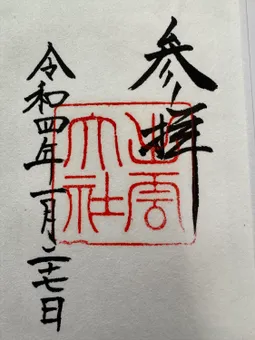 参拝
出雲大社
令和四年一月二十七日